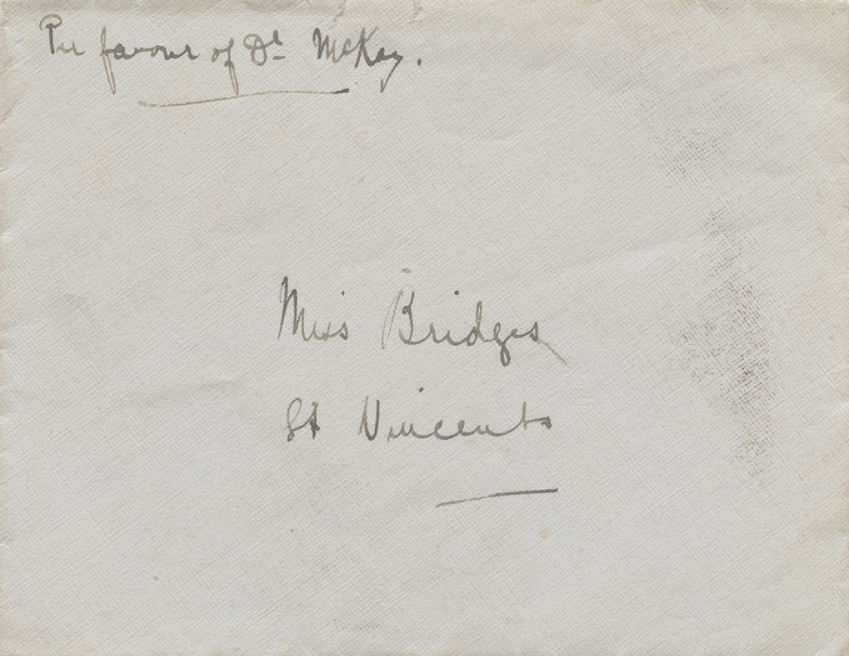 Per favour of Dr McKay.
Miss Bridges
St Vincents